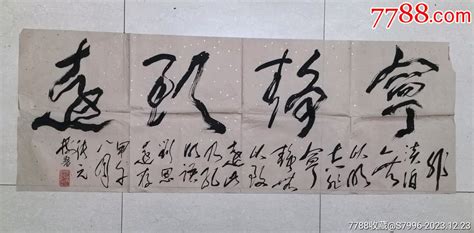 7788.com
寧靜致遠
非
淡泊
無
以明
志非
寧
靜無
以致
遠此
乃孔
明語
思
遠存
甲午
八月
7788收藏@S7996-2023.12.23